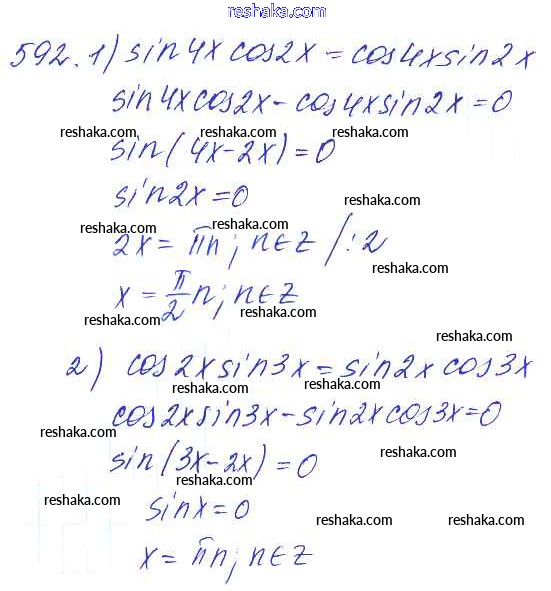 reshaka.com
592. 1) sin4x cos2x = cos4x sin2x
sin4x cos2x - cos4x sin2x = 0
reshaka.com reshaka.com
sin(4x-2x) = 0
reshaka.com
sin2x = 0
reshaka.com
reshaka.com reshaka.com
2x = πn; n∈Z /:2
reshaka.com
x = π/2 n; n∈Z
reshaka.com reshaka.com
2) cos2x sin3x = sin2x cos3x
reshaka.com reshaka.com
cos2x sin3x - sin2x cos3x = 0
reshaka.com
sin(3x-2x) = 0
reshaka.com
reshaka.com
reshaka.com
sinx = 0
reshaka.com reshaka.com
x = πn; n∈Z
reshaka.com